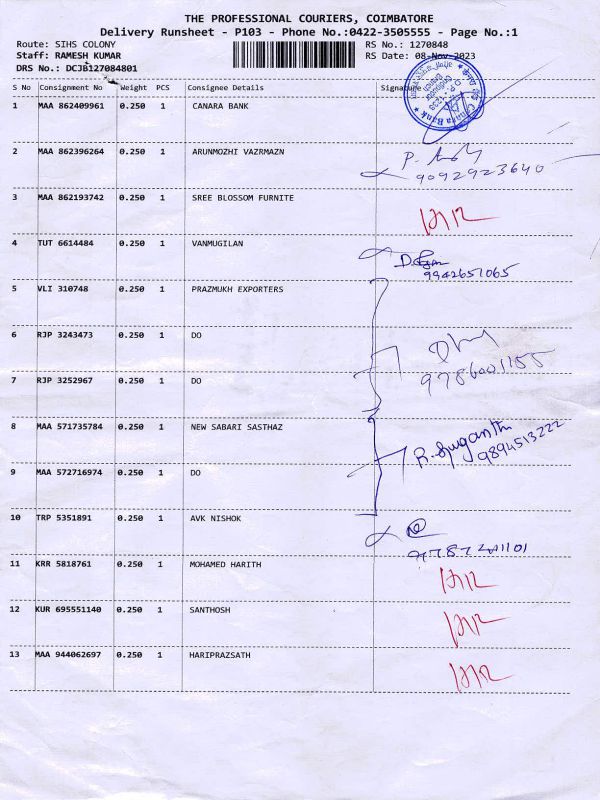 THE PROFESSIONAL COURIERS, COIMBATORE
Delivery Runsheet - P103 - Phone No.:0422-3505555 - Page No.:1
Route: SIHS COLONY RS No.: 1270848
Staff: RAMESH KUMAR RS Date: 08-Nov-2023
DRS No.: DCJB127084801
S No Consignment No Weight PCS Consignee Details Signature
1 MAA 862409961 0.250 1 CANARA BANK
2 MAA 862396264 0.250 1 ARUNMOZHI VAZRMAZN
9092923640
3 MAA 862193742 0.250 1 SREE BLOSSOM FURNITE
4 TUT 6614484 0.250 1 VANMUGILAN
9942651065
5 VLI 310748 0.250 1 PRAZMUKH EXPORTERS
6 RJP 3243473 0.250 1 DO
9786001155
7 RJP 3252967 0.250 1 DO
8 MAA 571735784 0.250 1 NEW SABARI SASTHAZ
R. Suganthi
9894513222
9 MAA 572716974 0.250 1 DO
10 TRP 5351891 0.250 1 AVK NISHOK
11 KRR 5818761 0.250 1 MOHAMED HARITH
12 KUR 695551140 0.250 1 SANTHOSH
13 MAA 944062697 0.250 1 HARIPRAZSATH